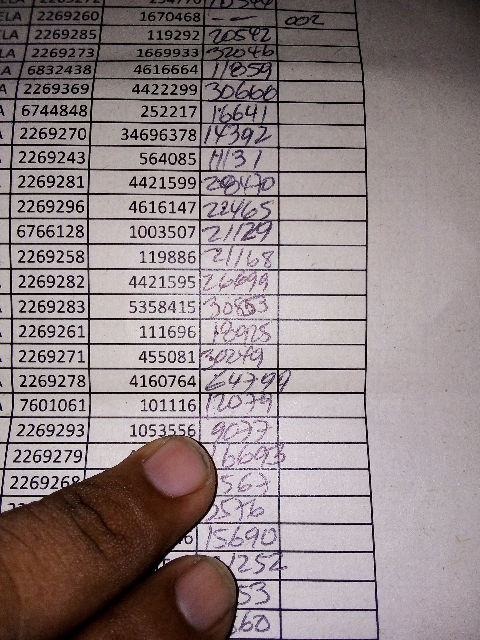 ELA 2269260 1670468 -- 002
ELA 2269285 119292 20592
LA 2269273 1669933 32046
A 6832438 4616664 11859
A 2269369 4422299 30666
A 6744848 252217 16641
A 2269270 34696378 14392
A 2269243 564085 11131
A 2269281 4421599 28470
A 2269296 4616147 22465
A 6766128 1003507 21129
2269258 119886 21168
A 2269282 4421595 26699
A 2269283 5358415 30853
A 2269261 111696 18925
A 2269271 455081 30249
A 2269278 4160764
A 7601061 101116 12079
2269293 1053556 9077
2269279 16693
2269268 567
576
15690
1252
53
60